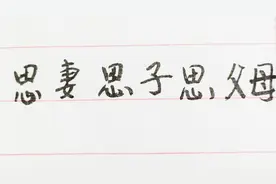 思妻思子思父母